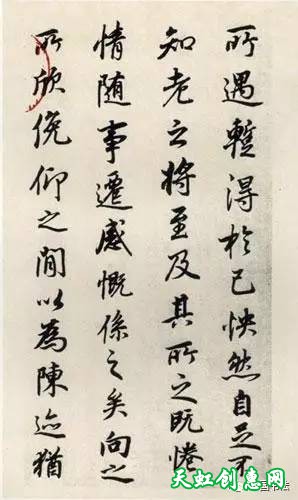 所遇暫得於己怏然自足不
知老之將至及其所之既惓
情隨事遷感慨係之矣向之
所欣俛仰之間以為陳迹猶
天虹创意网